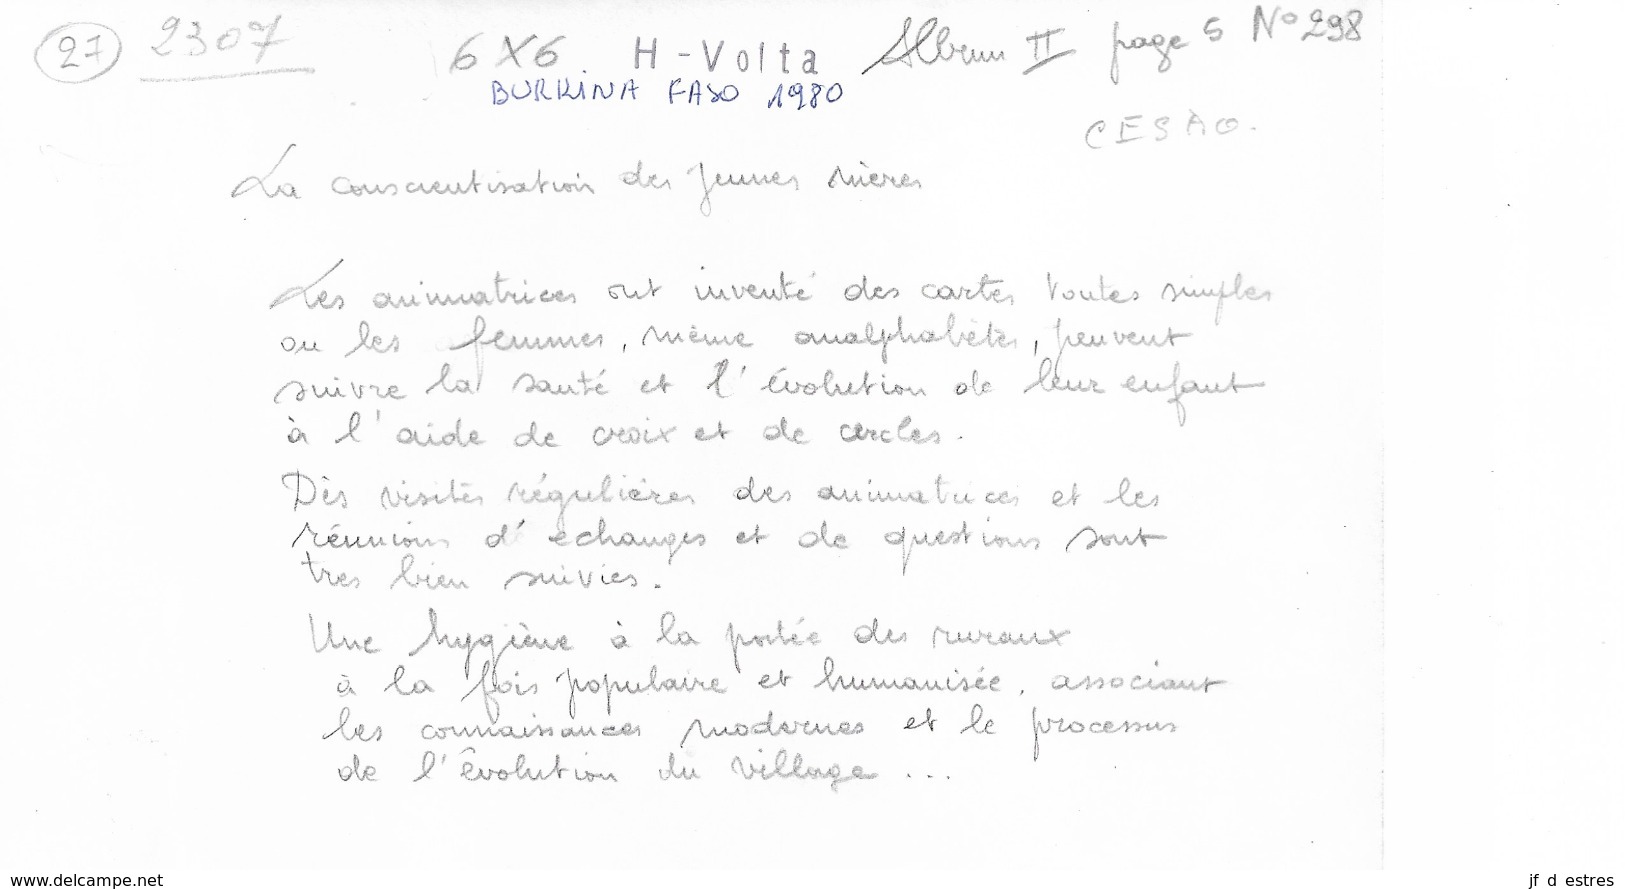 27 2307 6X6 H-Volta Album II page 5 N° 298
BURKINA FASO 1980
CESAO.
La conscientisation des jeunes mères
Les animatrices ont inventé des cartes toutes simples
ou les femmes, même analphabètes, peuvent
suivre la santé et l'évolution de leur enfant
à l'aide de croix et de cercles.
Dès visites régulières des animatrices et les
réunions d'échanges et de questions sont
tres bien suivies.
Une hygiène à la portée des ruraux
à la fois populaire et humanisée, associant
les connaissances modernes et le processus
de l'évolution du village ...
www.delcampe.net
jf d estres